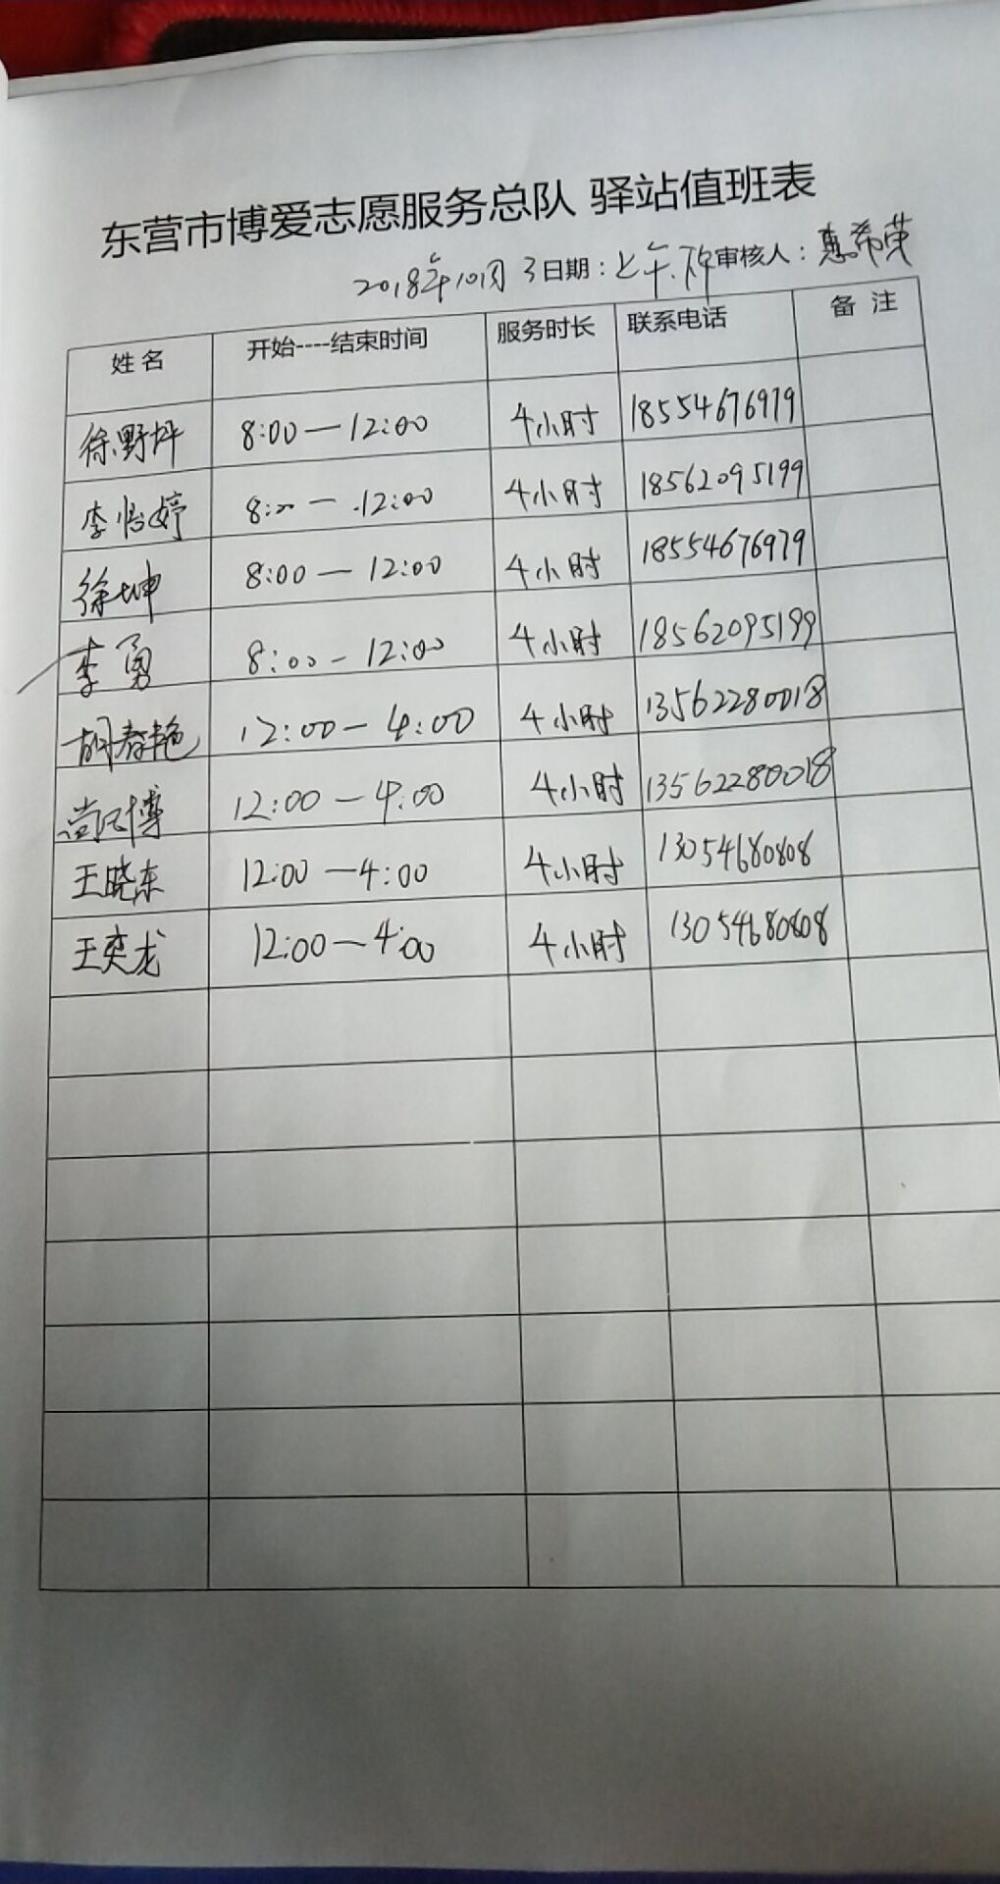 东营市博爱志愿服务总队 驿站值班表
2018年10月3日期：上午.下午 审核人：惠希荣
姓名 开始----结束时间 服务时长 联系电话 备注
徐野坪 8:00—12:00 4小时 18554676979
李怡婷 8:00— 12:00 4小时 18562095199
徐坤 8:00—12:00 4小时 18554676979
李勇 8:00-12:00 4小时 18562095199
胡春艳 12:00-4:00 4小时 13562280018
12:00-4:00 4小时 13562280018
王晓东 12:00-4:00 4小时 13054680808
王奕龙 12:00-4:00 4小时 13054680808